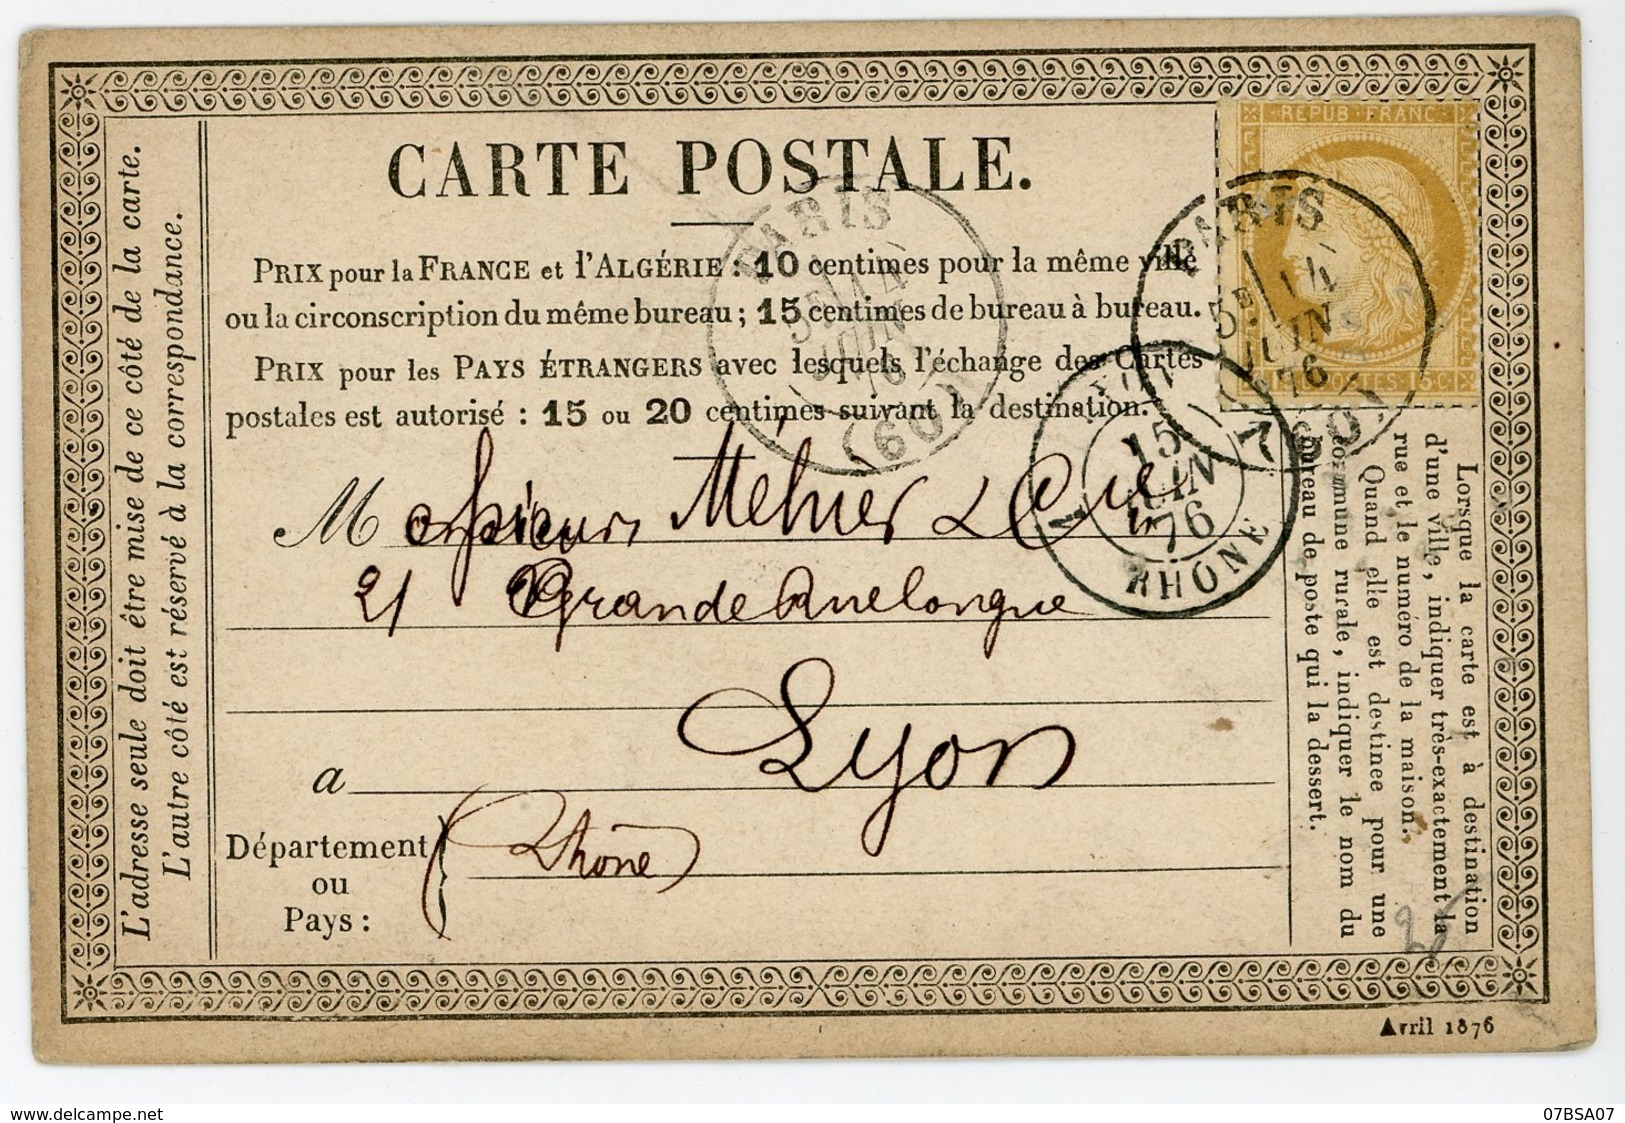 L'adresse seule doit être mise de ce côté de la carte.
L'autre côté est réservé à la correspondance.
CARTE POSTALE.
PRIX pour la FRANCE et l'ALGÉRIE : 10 centimes pour la même ville
ou la circonscription du même bureau ; 15 centimes de bureau à bureau.
PRIX pour les PAYS ÉTRANGERS avec lesquels l'échange des Cartes
postales est autorisé : 15 ou 20 centimes suivant la destination.
REPUB FRANC
15 POSTES 15 C
PARIS
5E 14
JUIN
76
(60)
PARIS
5E 14
JUIN
76
(60)
LYON
15
JUIN
76
RHÔNE
Monsieur Mehier & Cie
21 Grande rue longue
a Lyon
Département
ou
Pays :
Rhône
Lorsque la carte est à destination
d'une ville, indiquer très-exactement la
rue et le numéro de la maison.
Quand elle est destinee pour une
commune rurale, indiquer le nom du
bureau de poste qui la dessert.
Avril 1876
www.delcampe.net
07BSA07